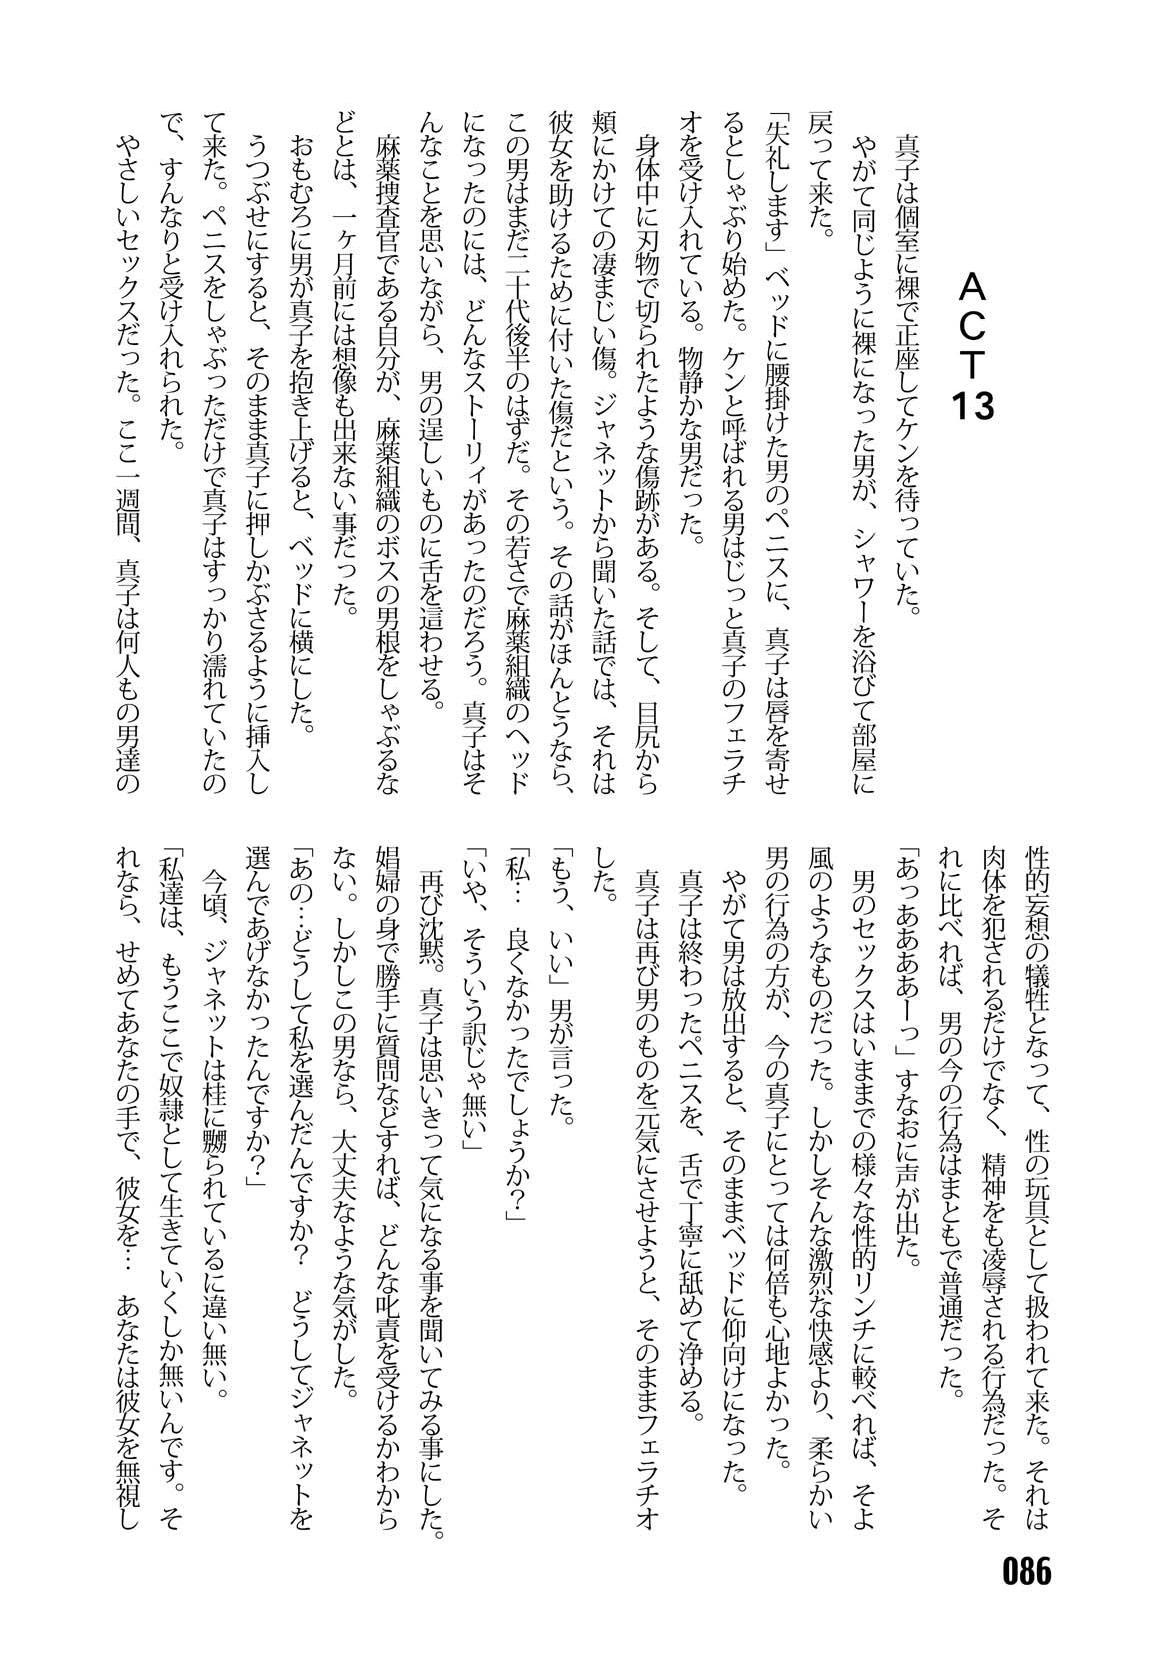 ACT13
真子は個室に裸で正座してケンを待っていた。
やがて同じように裸になった男が、シャワーを浴びて部屋に
戻って来た。
「失礼します」ベッドに腰掛けた男のペニスに、真子は唇を寄せ
るとしゃぶり始めた。ケンと呼ばれる男はじっと真子のフェラチ
オを受け入れている。物静かな男だった。
身体中に刃物で切られたような傷跡がある。そして、目尻から
頬にかけての凄まじい傷。ジャネットから聞いた話では、それは
彼女を助けるために付いた傷だという。その話がほんとうなら、
この男はまだ二十代後半のはずだ。その若さで麻薬組織のヘッド
になったのには、どんなストーリィがあったのだろう。真子はそ
んなことを思いながら、男の逞しいものに舌を這わせる。
麻薬捜査官である自分が、麻薬組織のボスの男根をしゃぶるな
どとは、一ヶ月前には想像も出来ない事だった。
おもむろに男が真子を抱き上げると、ベッドに横にした。
うつぶせにすると、そのまま真子に押しかぶさるように挿入し
て来た。ペニスをしゃぶっただけで真子はすっかり濡れていたの
で、すんなりと受け入れられた。
やさしいセックスだった。ここ一週間、真子は何人もの男達の
性的妄想の犠牲となって、性の玩具として扱われて来た。それは
肉体を犯されるだけでなく、精神をも凌辱される行為だった。そ
れに比べれば、男の今の行為はまともで普通だった。
「あっああああーっ」すなおに声が出た。
男のセックスはいままでの様々な性的リンチに較べれば、そよ
風のようなものだった。しかしそんな激烈な快感より、柔らかい
男の行為の方が、今の真子にとっては何倍も心地よかった。
やがて男は放出すると、そのままベッドに仰向けになった。
真子は終わったペニスを、舌で丁寧に舐めて浄める。
真子は再び男のものを元気にさせようと、そのままフェラチオ
した。
「もう、いい」男が言った。
「私…　良くなかったでしょうか？」
「いや、そういう訳じゃ無い」
再び沈黙。真子は思いきって気になる事を聞いてみる事にした。
娼婦の身で勝手に質問などすれば、どんな叱責を受けるかわから
ない。しかしこの男なら、大丈夫なような気がした。
「あの…どうして私を選んだんですか？　どうしてジャネットを
選んであげなかったんですか？」
今頃、ジャネットは桂に嬲られているに違い無い。
「私達は、もうここで奴隷として生きていくしか無いんです。そ
れなら、せめてあなたの手で、彼女を…　あなたは彼女を無視し
086